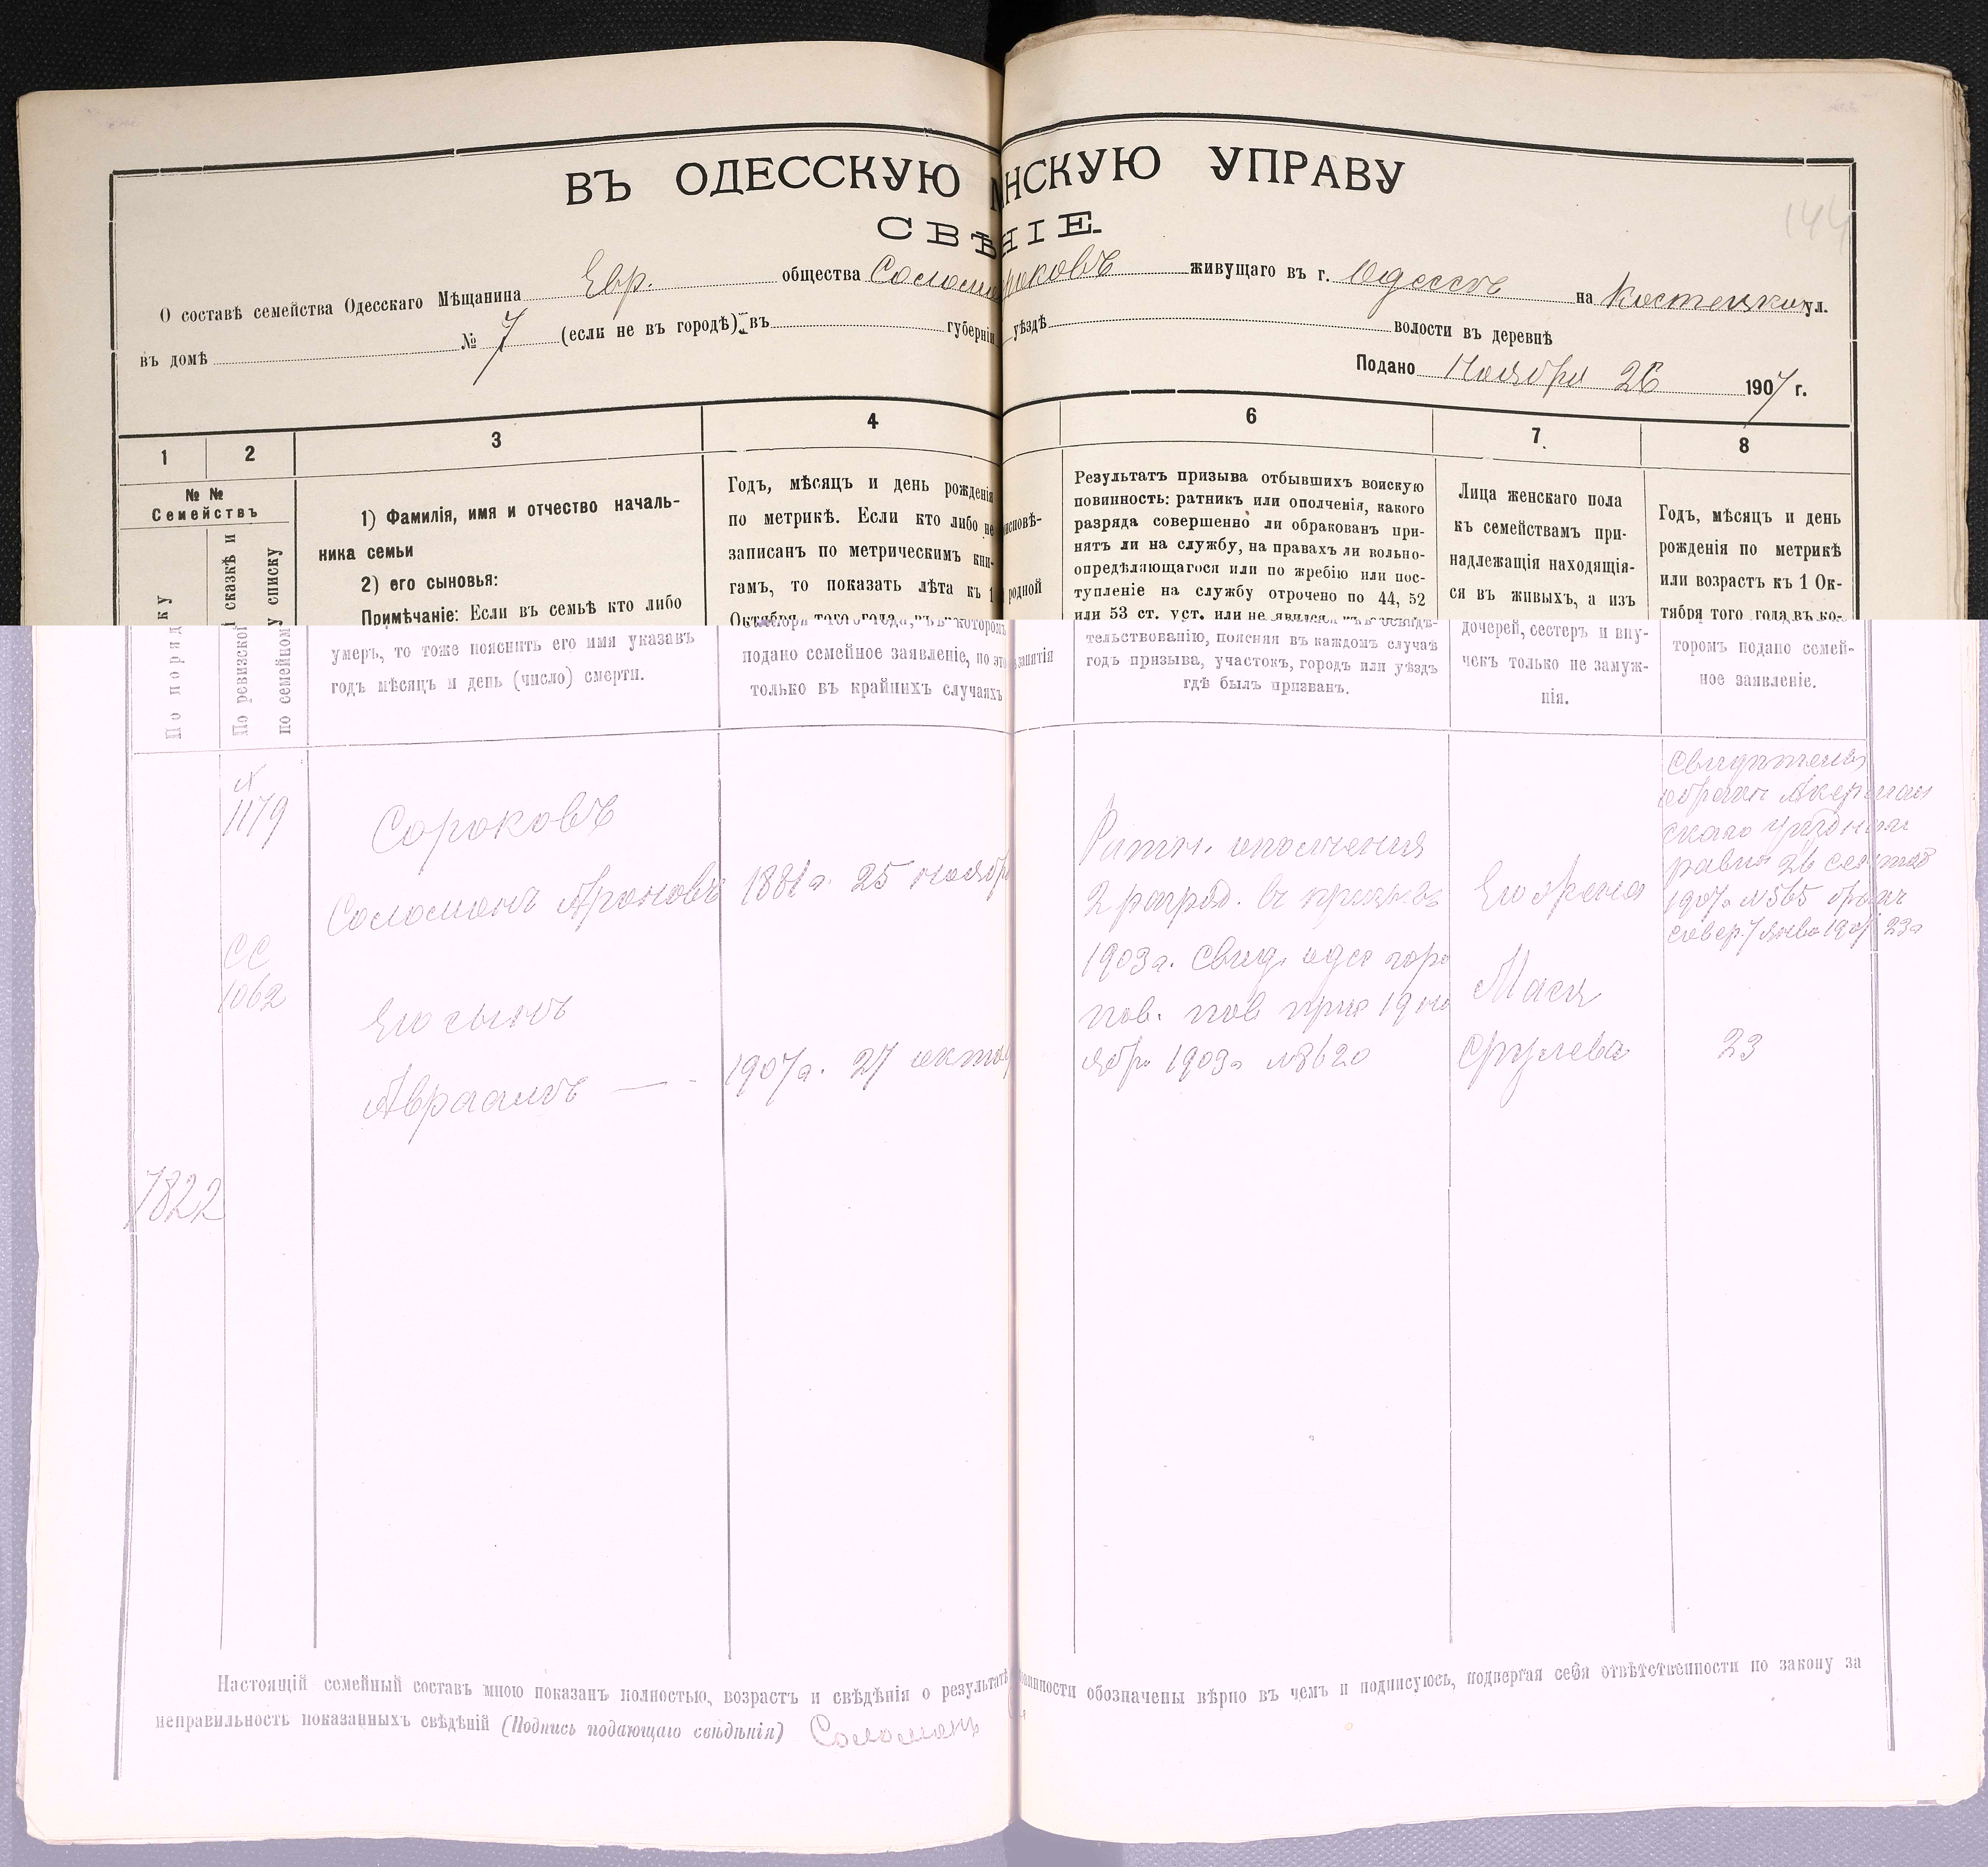 144
ВЪ ОДЕССКУЮ НСКУЮ УПРАВУ
СВѢ НІЕ.
О составѣ семейства Одесскаго Мѣщанина Евр. общества Соломо роковъ живущаго въ г. Одессѣ на Костецкой ул.
въ домѣ № 7 (если не въ городѣ) въ губерніи уѣздѣ волости въ деревнѣ
Подано Ноября 26 1907 г.
1 2 3 4 6 7. 8
№ №
Семействъ
По поряд ку
По ревизской сказкѣ и
по семейному списку
1) Фамилія, имя и отчество началь-
ника семьи
2) его сыновья:
Примѣчаніе: Если въ семьѣ кто либо
умеръ, то тоже пояснить его имя указавъ
годъ мѣсяцъ и день (число) смерти.
Годъ, мѣсяцъ и день рожденія
по метрикѣ. Если кто либо не
записанъ по метрическимъ кни-
гамъ, то показать лѣта къ 1
Октября того года, въ которомъ
подано семейное заявленіе, но это
только въ крайнихъ случаяхъ
исповѣ-
родной
занятія
Результатъ призыва отбывшихъ воискую
повинность: ратникъ или ополченія, какого
разряда совершенно ли обракованъ при-
нятъ ли на службу, на правахъ ли вольно-
опредѣляющагося или по жребію или пос-
тупленіе на службу отрочено по 44, 52
или 53 ст. уст. или не явился къ освидѣ-
тельствованію, поясняя въ каждомъ случаѣ
годъ призыва, участокъ, городъ или уѣздъ
гдѣ былъ призванъ.
Лица женскаго пола
къ семействамъ при-
надлежащія находящія-
ся въ живыхъ, а изъ
дочерей, сестеръ и вну-
чекъ только не замуж-
нія.
Годъ, мѣсяцъ и день
рожденія по метрикѣ
или возрастъ къ 1 Ок-
тября того года въ ко-
торомъ подано семей-
ное заявленіе.
7822
№
1179
СС
1062
Сороковъ
Соломонъ Ароновъ
Его сынъ
Авраамъ
1881г. 25 ноябр
1907г. 27 октяб
Ратн. ополченія
2 разряд. въ призывъ
1903г. Свид. одес гор
пов. прис 19 но
ябр. 1903г №8620
Его жена
Мася
Срулева
Свидѣтел
о бракѣ Аккерман
скаго уѣздн
равин 26 сентяб
1907г №565 бракъ
совер. 7 янв 1907 23г
23
Настоящій семейный составъ мною показанъ полностью, возрастъ и свѣдѣнія о результатѣ винности обозначены вѣрно въ чемъ и подписуюсь, подвергая себя отвѣтственности по закону за
неправильность показанныхъ свѣдѣній (Подпись подающаго свѣдѣнія) Соломонъ